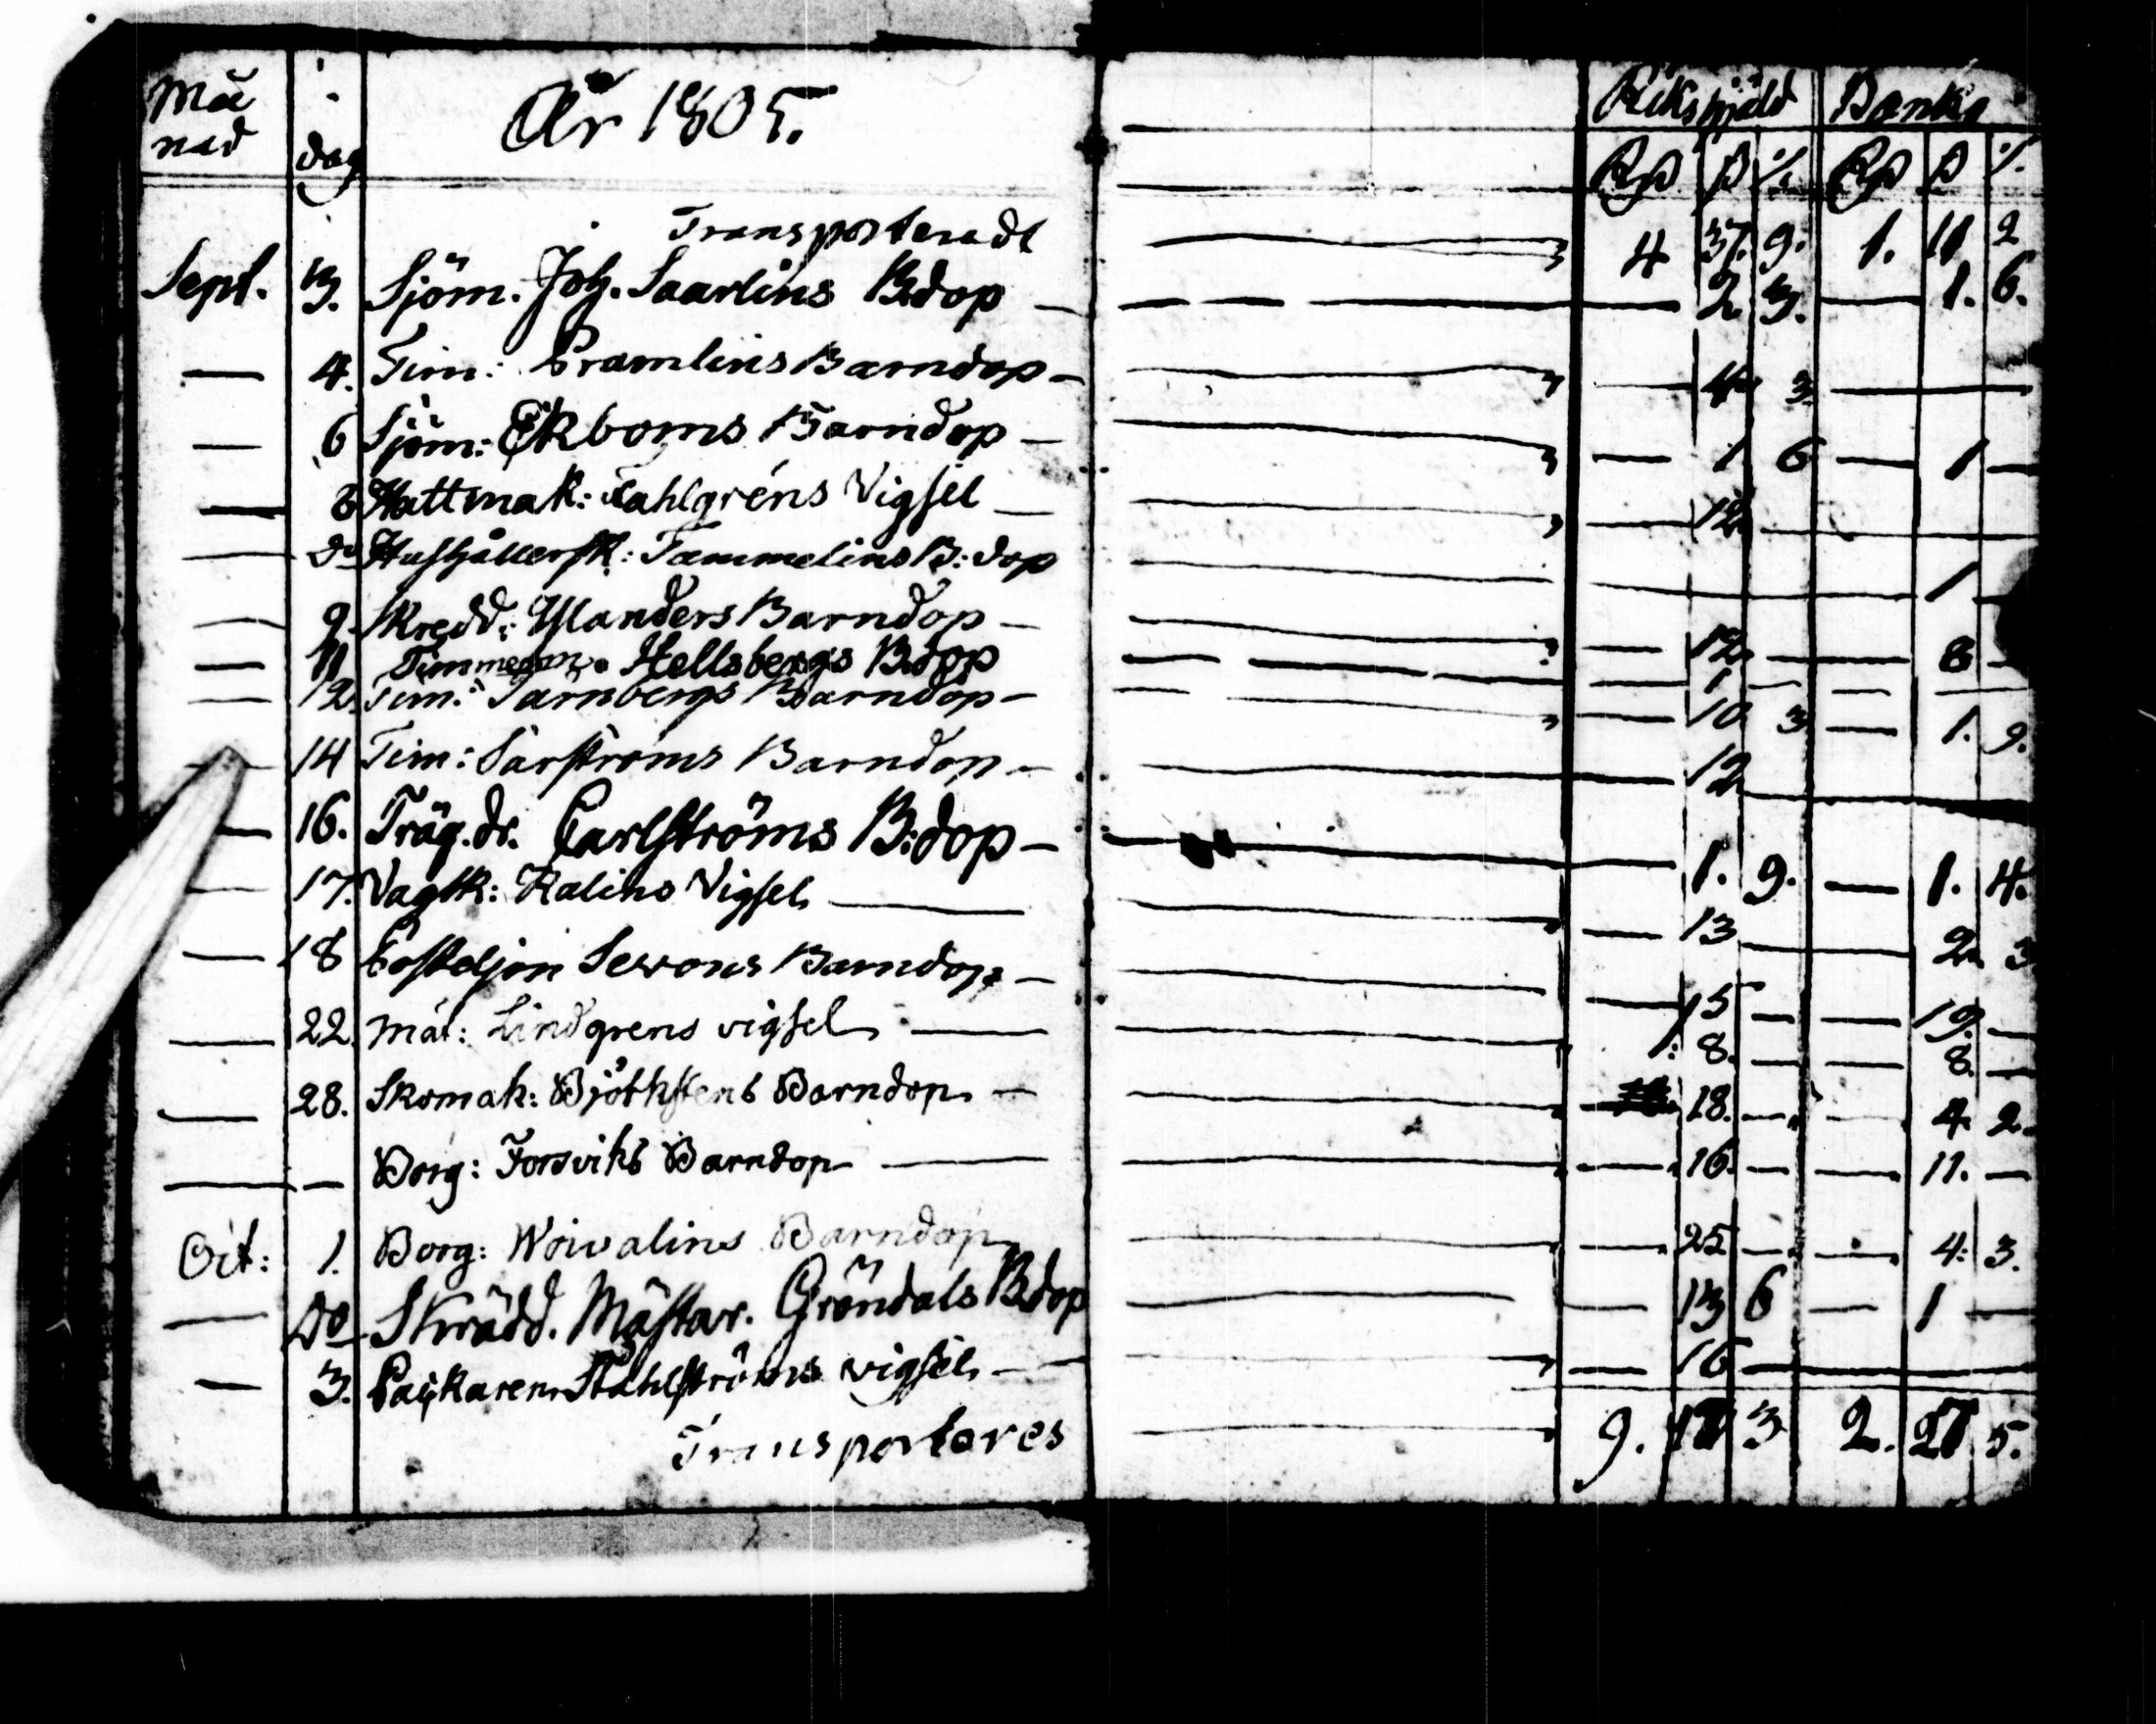 Må
nad dag År 1805. Riksgjäld Banko
Rd ß /. Rd ß /.
Transporteradt 4 37. 9. 1. 11 2
Sept. 3. Sjöm. Joh. Saarlins B.dop — 2 3. — 1. 6.
— 4. Tim: Pramlins Barndop — 4 3 —
— 6 Sjöm: Ekboms Barndop — 1 6 — 1 —
— 8 Hattmak: Vigsel — 12 —
— Do Hushållersk: Tammelins B: dop — 1 —
— 9. Skredd: Barndop — 12 — 8 —
— 11 Timmerm. Hellsbergs B.dop — 1 — — —
— 12. Tim: Tarnbergs Barndop — 10 3 — 1. 9.
— 14 Tim: Barndop — 12 —
— 16. Träg.dr. Carlströms B:dop — 1. 9. — 1. 4.
— 17. Vagtk: Kalins Vigsel — 13 — 2 3
— 18 Posteljon Barndop — 15 — — 19. —
— 22. Mål: Lindgrens vigsel — 1: 8. — — 8 —
— 28. Skomak: Barndop — 18. — — 4. 2.
— — Borg: Forsviks Barndop — 16. — — 11. —
Oct: 1. Borg: Woivalins Barndop — 25 — — 4: 3.
— Do Skrädd. Mästar. Gröndals B.dop — 13 6 — 1 —
— 3. Packaren Stahlströms vigsel — 16 —
Transporteres 9. 3 2. 27 5.